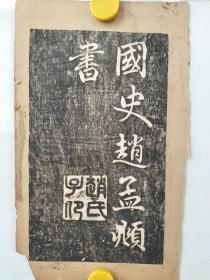 國史趙孟頫
書
趙氏
子印